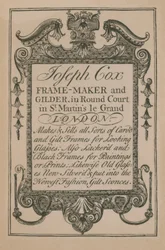 Joseph Cox
FRAME-MAKER and
GILDER, in Round Court
in St. Martin's le Grand
LONDON
Makes & Sells all Sorts of Carv'd
and Gilt Frames for Looking
Glasses. Also Lacker'd and
Black Frames for Paintings
or Prints. Likewise Old Glasses
new Silver'd & put into the
Newest Fashion, Gilt Sconces.